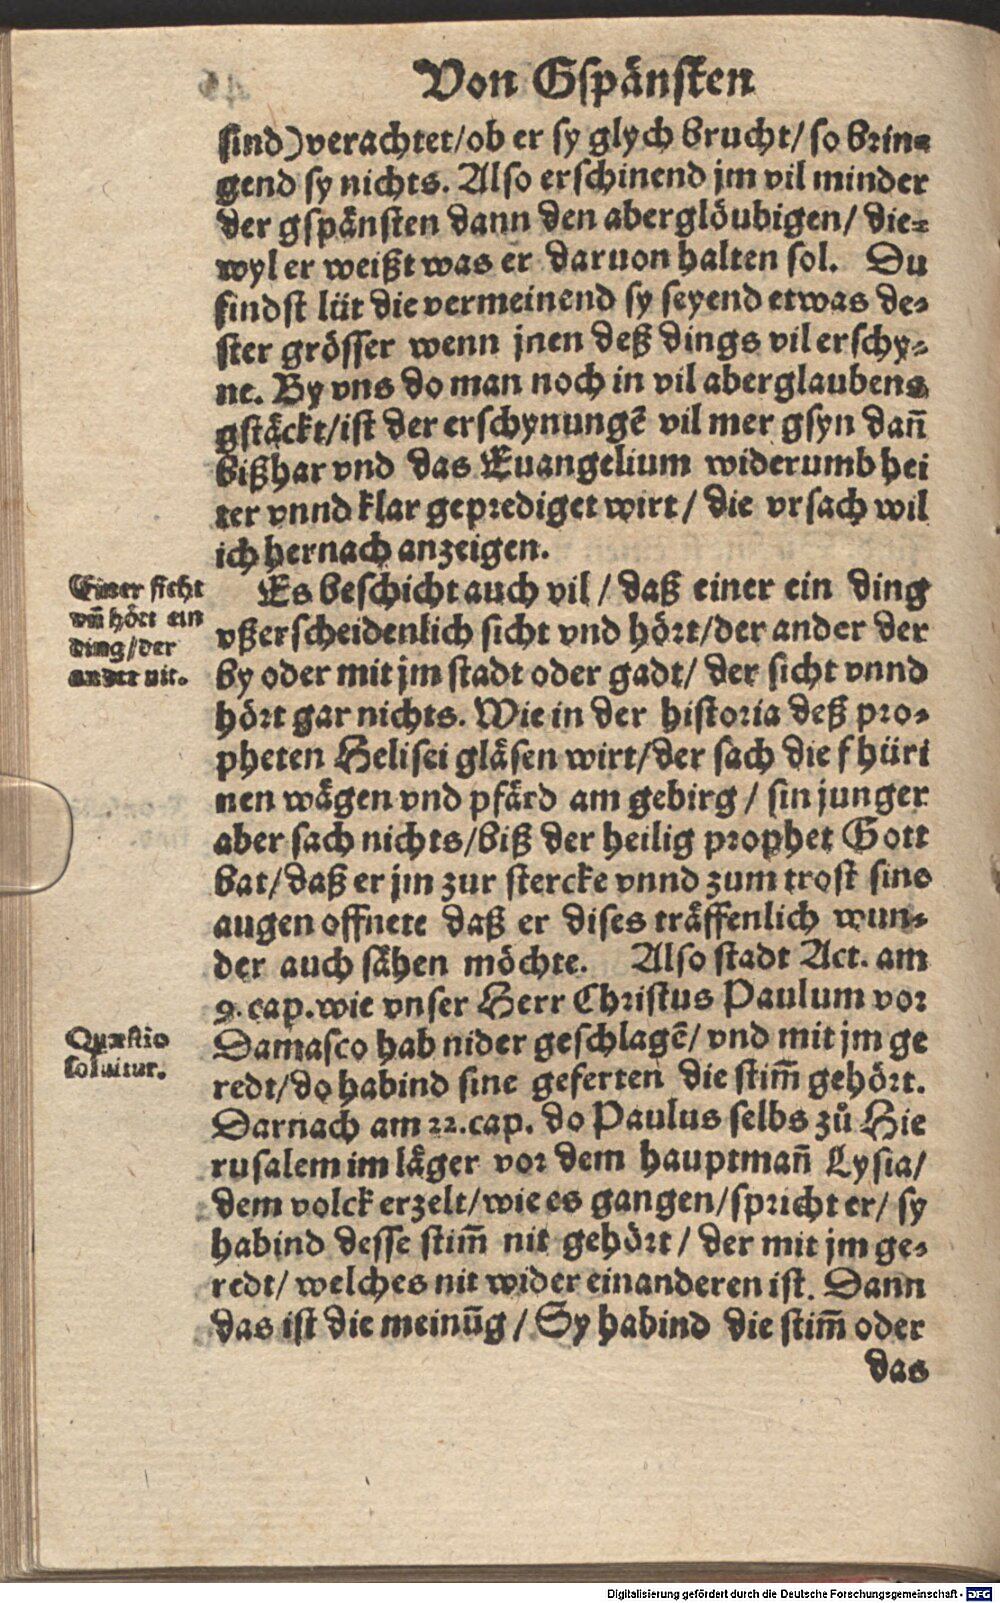 Von Gspänsten
sind) verachtet/ob er sy glych brucht/ so brin⸗
gend sy nichts. Also erschinend jm vil minder
der gspänsten dann den aberglöubigen/ die⸗
wyl er weißt was er daruon halten sol. Du
findst lüt die vermeinend sy seyend etwas de⸗
ster grösser wenn jnen deß dings vil erschy⸗
ne. By vns do man noch in vil aberglaubens
gstäckt/ist der erschynungẽ vil mer gsyn dañ
bißhar vnd das Euangelium widerumb hei
ter vnnd klar geprediget wirt/ die vrsach wil
ich hernach anzeigen.
Einer sicht
vñ hört ein
ding/der
ander nit.
Es beschicht auch vil / daß einer ein ding
vßerscheidenlich sicht vnd hört/der ander der
by oder mit jm stadt oder gadt/ der sicht vnnd
hört gar nichts. Wie in der historia deß pro⸗
pheten Helisei gläsen wirt/der sach die fhüri
nen wägen vnd pfärd am gebirg / sin junger
aber sach nichts/biß der heilig prophet Gott
bat/daß er jm zur stercke vnnd zum trost sine
augen offnete daß er dises träffenlich wun⸗
der auch sähen möchte. Also stadt Act. am
9. cap. wie vnser Herr Christus Paulum vor
Quæstio
soluitur.
Damasco hab nider geschlagẽ/ vnd mit jm ge
redt/do habind sine geferten die stim̃ gehört.
Darnach am 22. cap. do Paulus selbs zů Hie
rusalem im läger vor dem hauptmañ Lysia/
dem volck erzelt/wie es gangen/spricht er/ sy
habind desse stim̃ nit gehört / der mit jm ge⸗
redt/ welches nit wider einanderen ist. Dann
das ist die meinũg / Sy habind die stim̃ oder
das
Digitalisierung gefördert durch die Deutsche Forschungsgemeinschaft - DFG